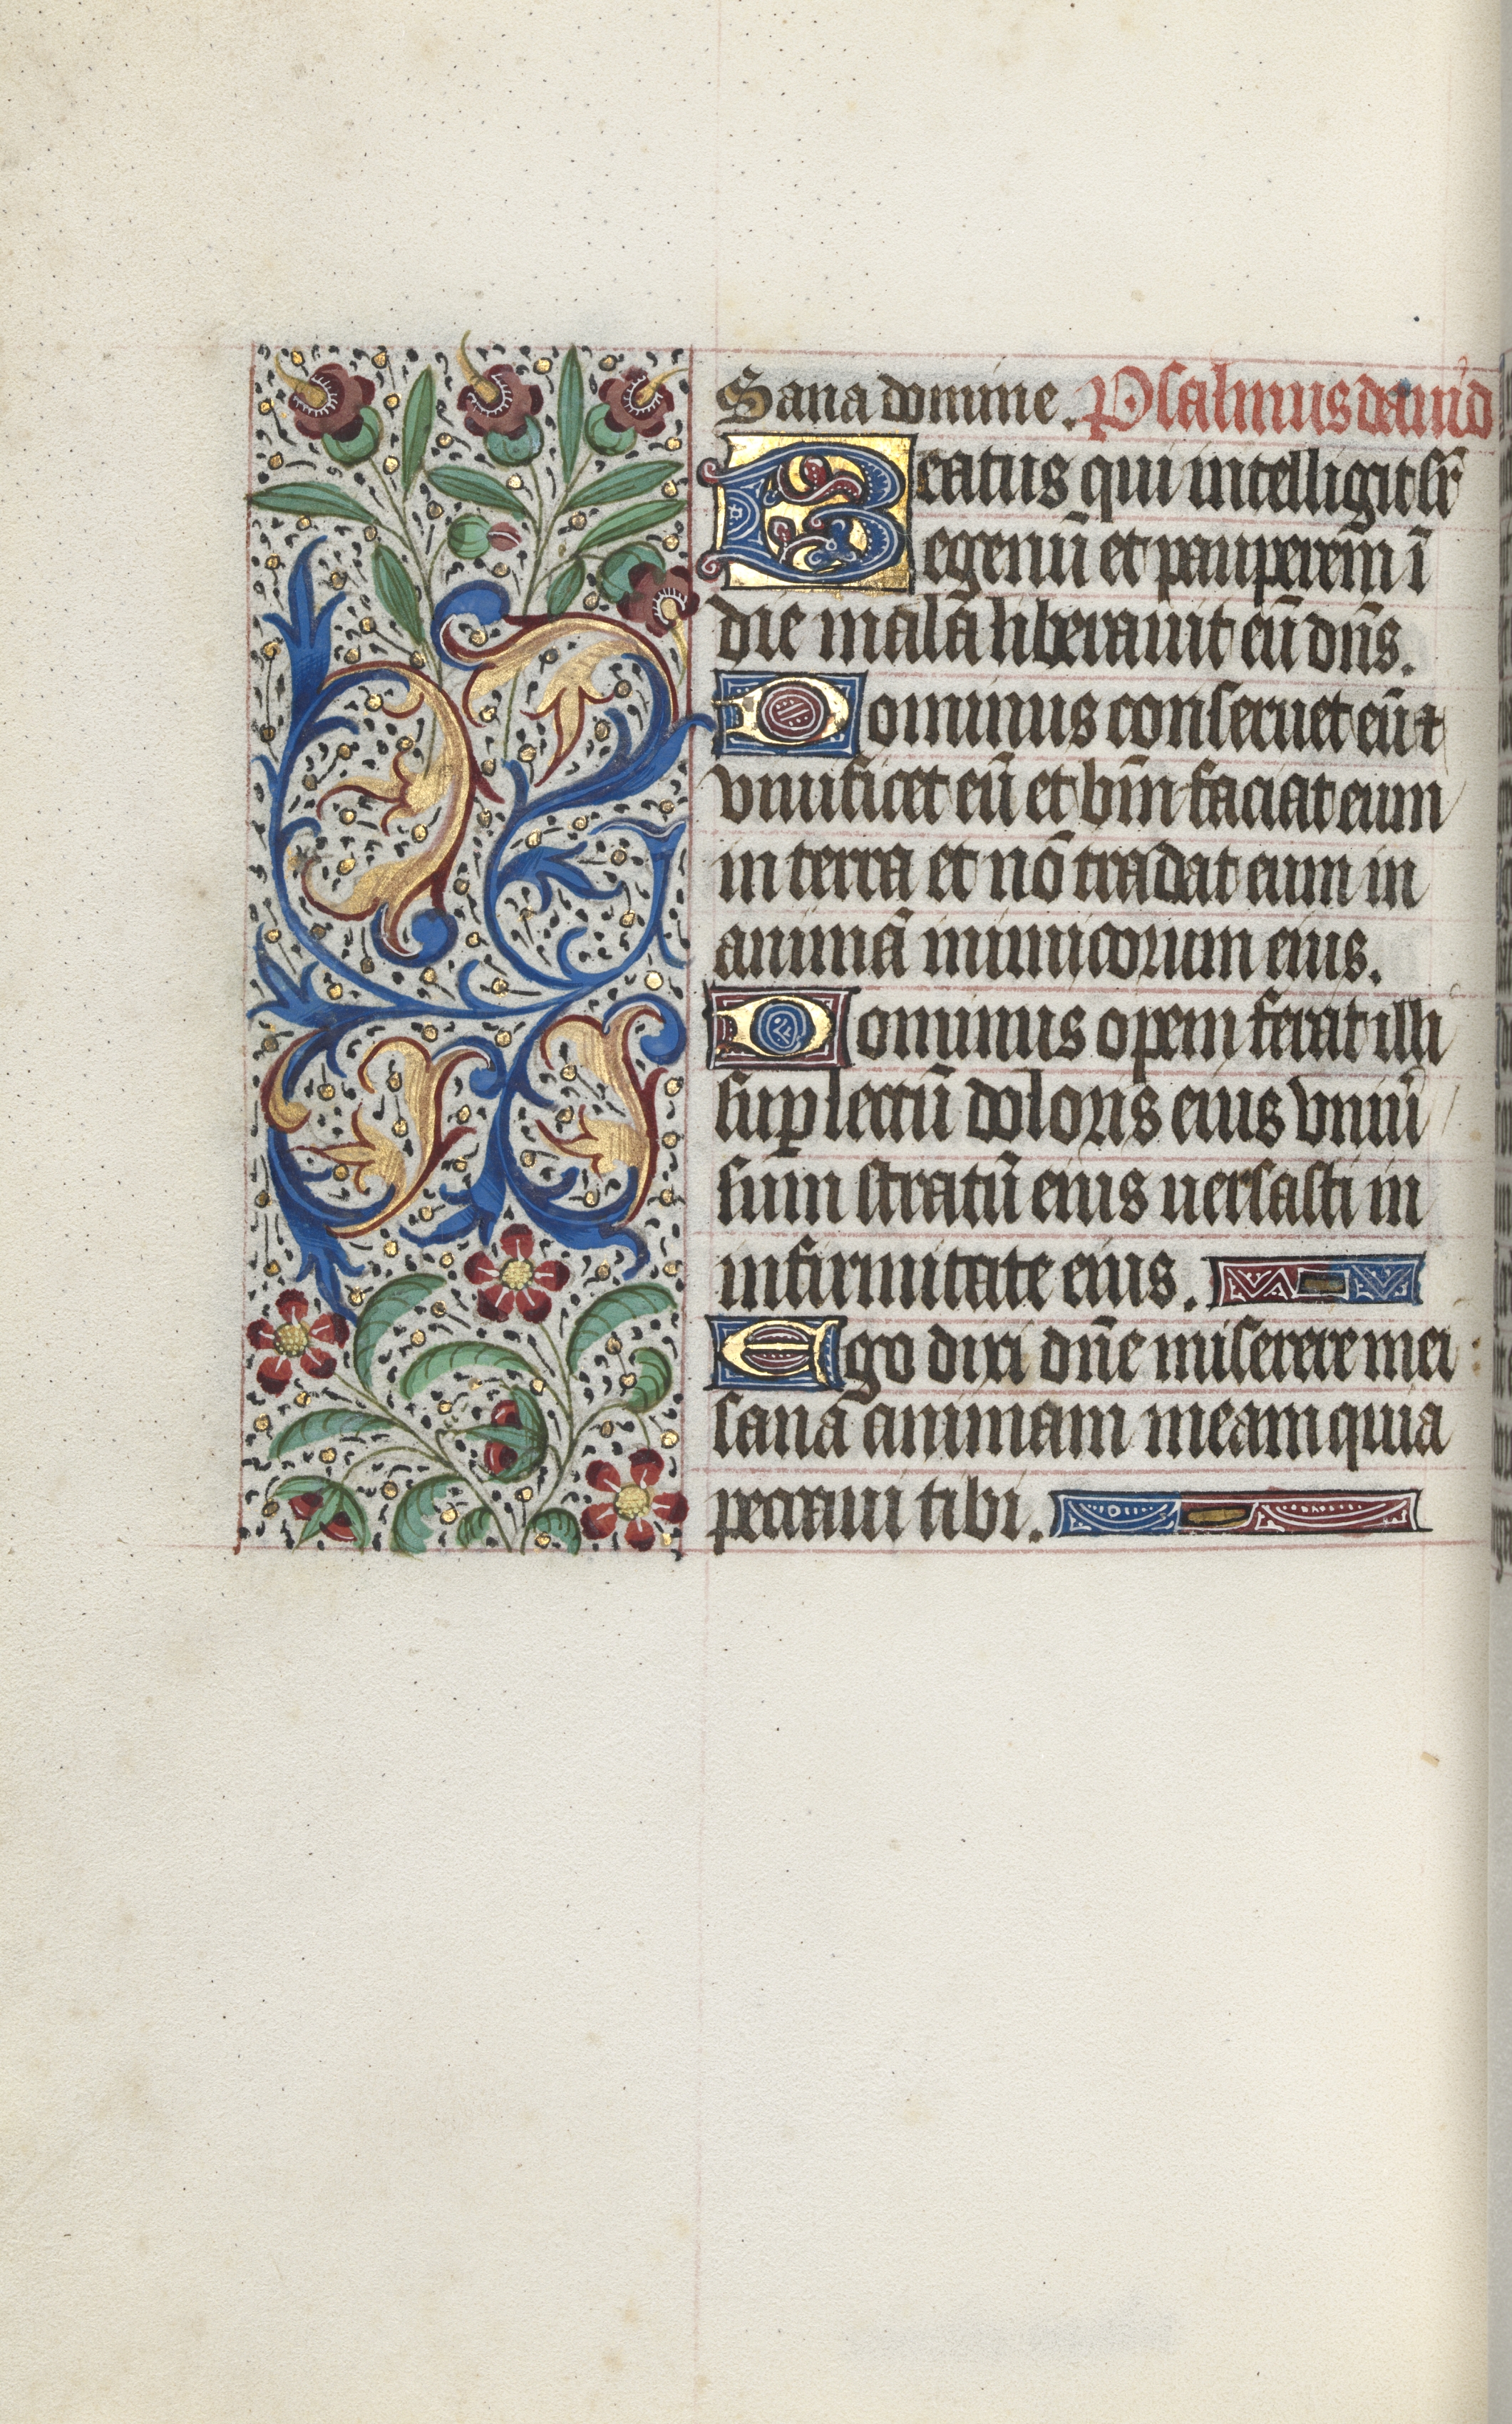 Sana domine. Psalmus dauid
Beatus qui intelligit sr̄
egenū et pauperem ī
die malā liberauit eū dn̄s.
Dominus conseruet eū ⁊
viuificet eū et bm̄ faciat eum
in terra et nō tradat eum in
animā inimicorum eius.
Dominus opem ferat illi
sup lectū doloris eius vniū
sum stratū eius uersasti in
infirmitate eius.
Ego dixi dn̄e miserere mei
sana animam meam quia
peccaui tibi.